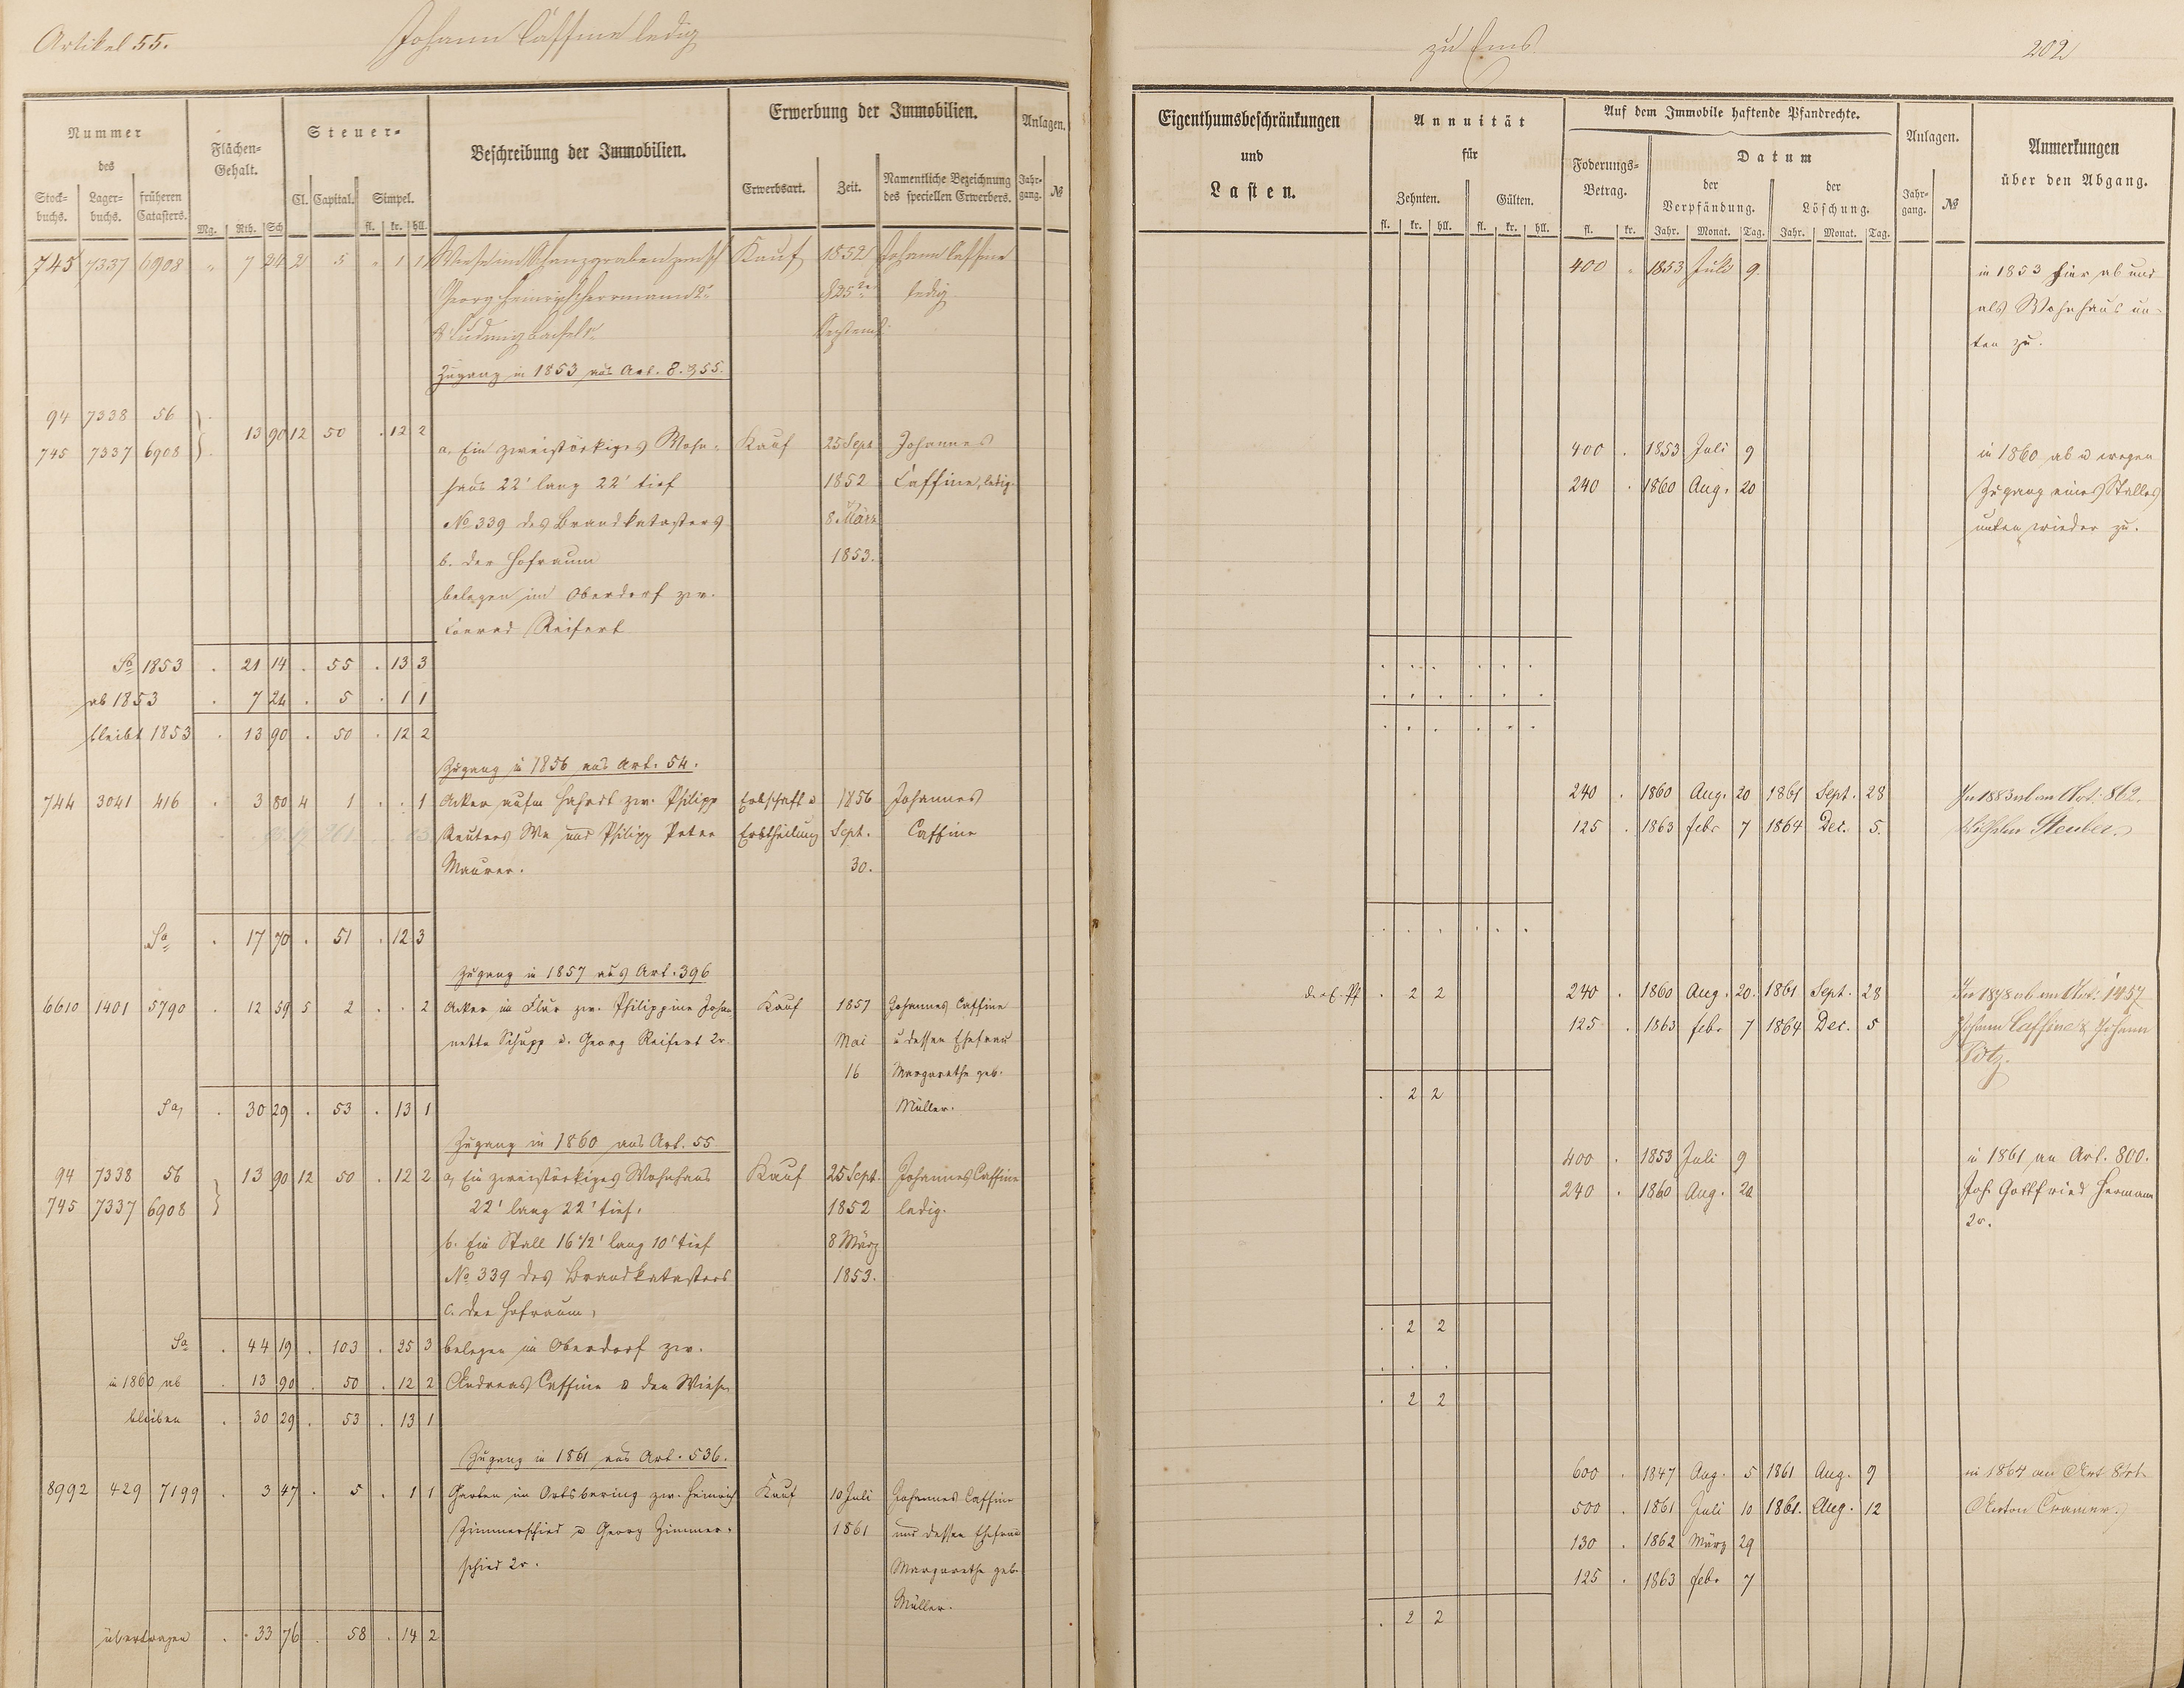 Artikel 55. Johann Caffine ledig
Nummer des
Stockbuchs. Lagerbuchs. früheren Catasters.
Flächen-Gehalt.
Mg. Rth. Sch
Steuer-
Cl. Capital. Simpel.
fl. kr. hll.
Beschreibung der Immobilien.
Erwerbung der Immobilien.
Erwerbsart. Zeit. Namentliche Bezeichnung des speciellen Erwerbers.
Anlagen.
Jahrgang. №
745 7337 6908 " 7 24 2 5 " 1 1 Wiese im Schanzgraben zwsch Kauf 1852 Johann Caffine
Georg Heinrich Herrmann 2r d 25ten ledig
& Ludwig Septemb.
Zugang in 1853 aus Art. 8. & 55.
94 7338 56
13 90 12 50 . 12 2
745 7337 6908
a, Ein zweistöckiges Wohn- Kauf 25 Sept Johannes
haus 22' lang 22' tief 1852 Caffine, ledig.
No 339 des Brandkatasters 8. März
b. der Hofraum 1853.
belegen im Oberdorf zw.
Conrad Reifert
Sa 1853 . 21 14 . 55 . 13 3
ab 1853 . 7 24 . 5 . 1 1
bleibt 1853 . 13 90 . 50 . 12 2
Zugang in 1856 aus Art. 54.
744 3041 416 . 3 80 4 1 . . 1 Acker aufm Hahrt zw. Philipp Erbschaft u 1856 Johannes
Reuters We und Philipp Peter Erbtheilung Sept. Caffine
Maurer. 30.
Sa . 17 70 . 51 . 12 3
Zugang in 1857 aus Art. 396
6610 1401 5790 . 12 59 5 2 . . 2 Acker im Flur zw. Philippine Joha- Kauf 1857 Johannes Caffine
nette Schupp u. Georg Reifert 2r. Mai u dessen Ehefrau
16 Margarethe geb.
Sa, . 30 29 . 53 . 13 1 Müller.
Zugang in 1860 aus Art. 55
94 7338 56 13 90 12 50 . 12 2 a, Ein zweistöckiges Wohnhaus Kauf 25 Sept. Johannes Caffine
745 7337 6908 22' lang 22' tief, 1852 ledig.
b. Ein Stall 16 1/2' lang 10' tief 8 März
No 339 des Brandkatasters 1853.
c. der Hofraum,
Sa . 44 19 . 103 . 25 3 belegen im Oberdorf zw.
in 1860 ab . 13 90 . 50 . 12 2 Andreas Caffine u den Wiesen
bleiben . 30 29 . 53 . 13 1
Zugang in 1861 aus Art. 536.
8992 429 7199 . 3 47 . 5 . 1 1 Garten im Ortsbering zw. Heinrich Kauf 10 Juli Johannes Caffine
Zimmerschied u Georg Zimmer- 1861 und dessen Ehefrau
schied 2r. Margarethe geb.
Müller.
übertragen . . 33 76 . 58 . 14 2
zu Ems 202
Eigenthumsbeschränkungen und Lasten.
Annuität für
Zehnten. Gülten.
fl. kr. hll. fl. kr. hll.
Auf dem Immobile haftende Pfandrechte.
Foderungs-Betrag.
fl. kr.
Datum
der Verpfändung. der Löschung.
Jahr. Monat. Tag. Jahr. Monat. Tag.
Anlagen.
Jahrgang. №
Anmerkungen über den Abgang.
400 . 1853 Juli 9. in 1853 hier ab und
als Wohnhaus un-
ten zu.
400 . 1853 Juli 9 in 1860 ab u wegen
240 . 1860 Aug. 20 Zugang eines Stalles
unten wieder zu.
240 . 1860 Aug. 20 1861 Sept. 28 In 1883 ab an Art: 862.
125 . 1863 febr 7 1864 Dec. 5. Wilhelm Steuber.
. 2 2 240 . 1860 Aug. 20. 1861 Sept. 28 In 1878 ab an Art: 1437
125 . 1863 febr 7 1864 Dec. 5 Johann Caffine & Johann
. 2 2
400 . 1853 Juli 9 in 1861 an Art. 800.
240 . 1860 Aug. 20 Joh. Gottfried Hermann
2r.
. 2 2
. . .
. 2 2
600 . 1847 Aug. 5 1861 Aug. 9 in 1864 an Art
500 . 1861 Juli 10 1861. Aug. 12 Anton Cramer.
130 . 1862 März 29
125 . 1863 febr 7
. 2 2